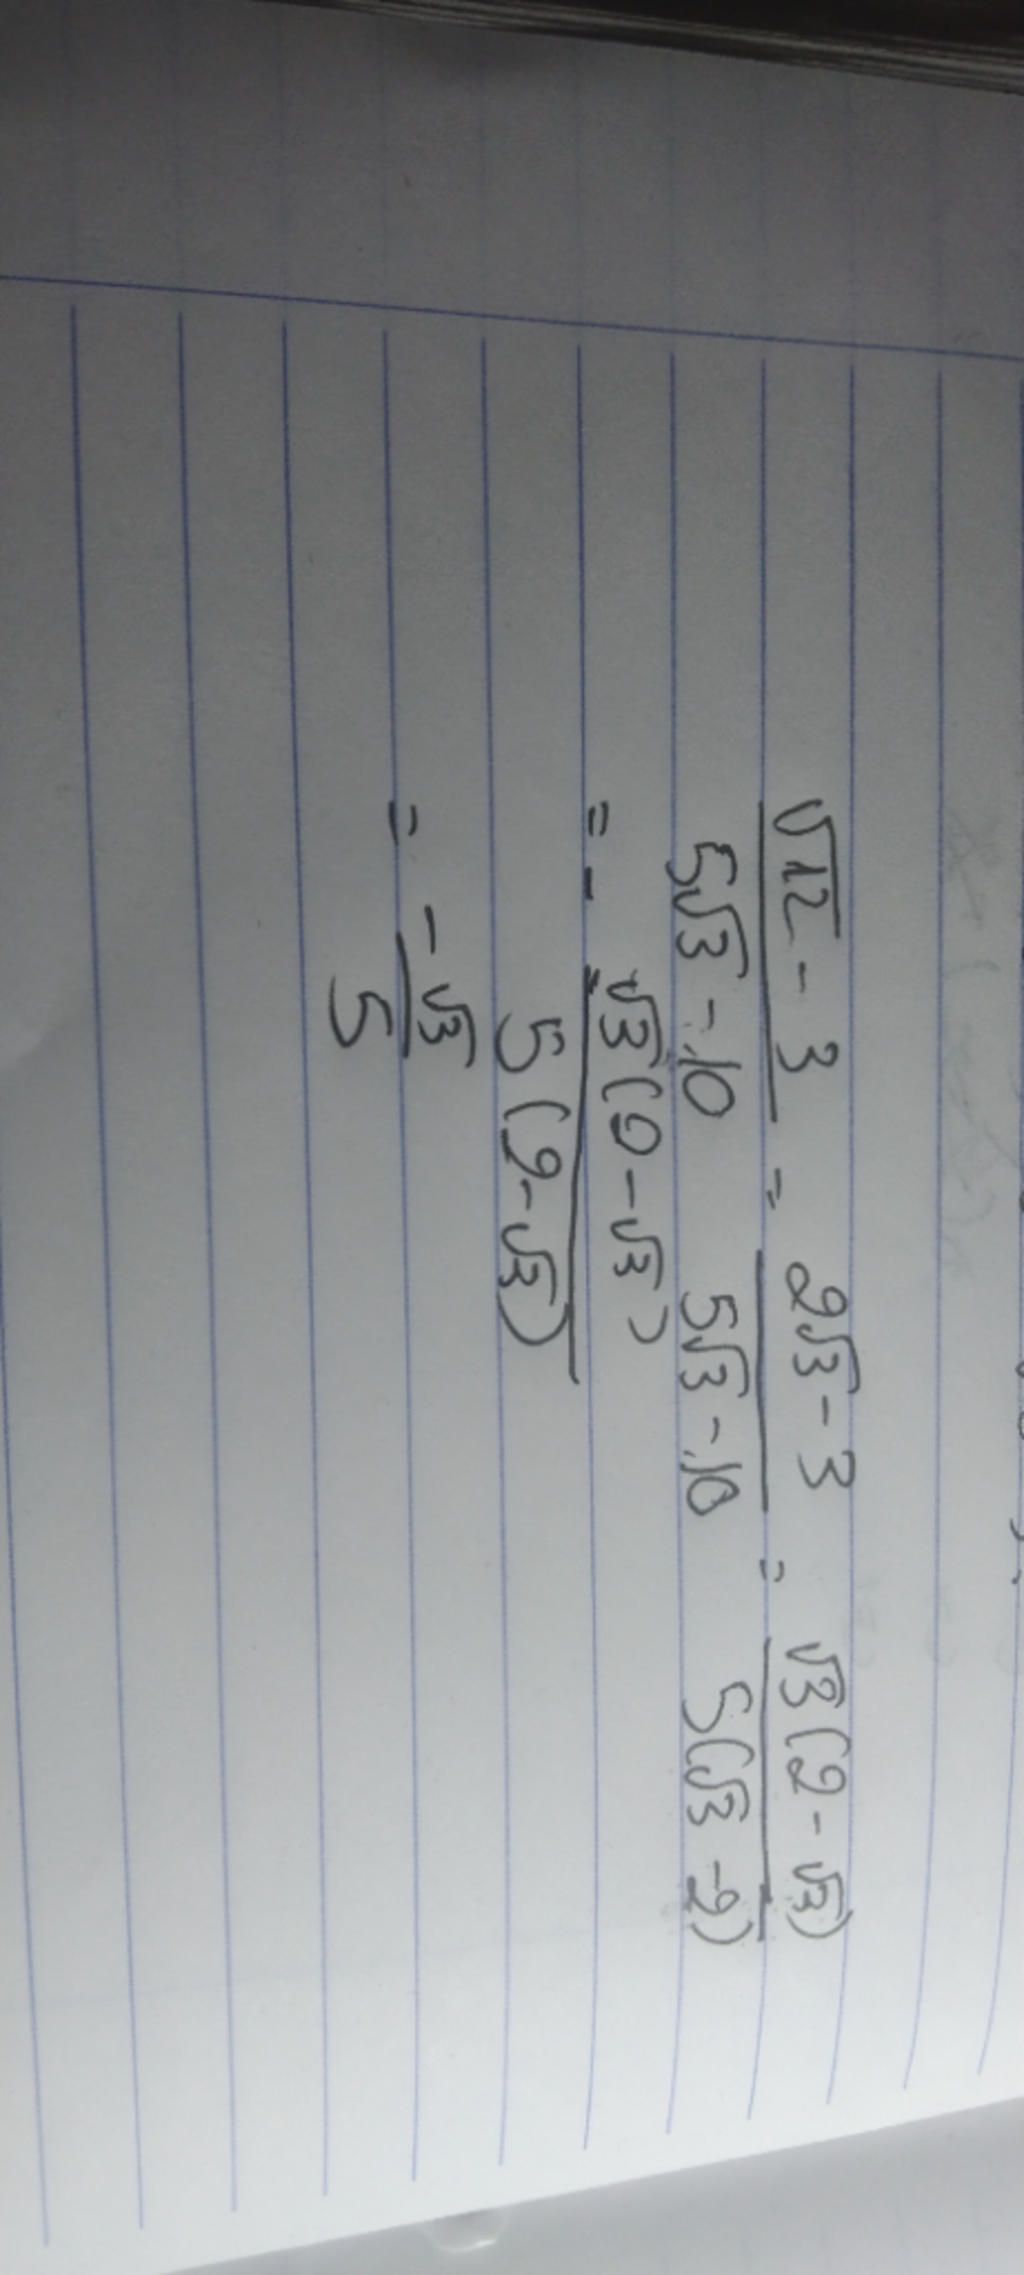 √12 - 3 / 5√3 - 10 = 2√3 - 3 / 5√3 - 10 = √3(2 - √3) / 5(√3 - 2)
= - √3(2 - √3) / 5(2 - √3)
= -√3 / 5